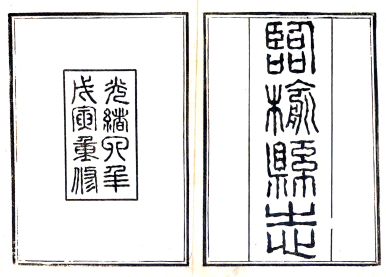 臨榆縣志
光緒四年
戊寅重修